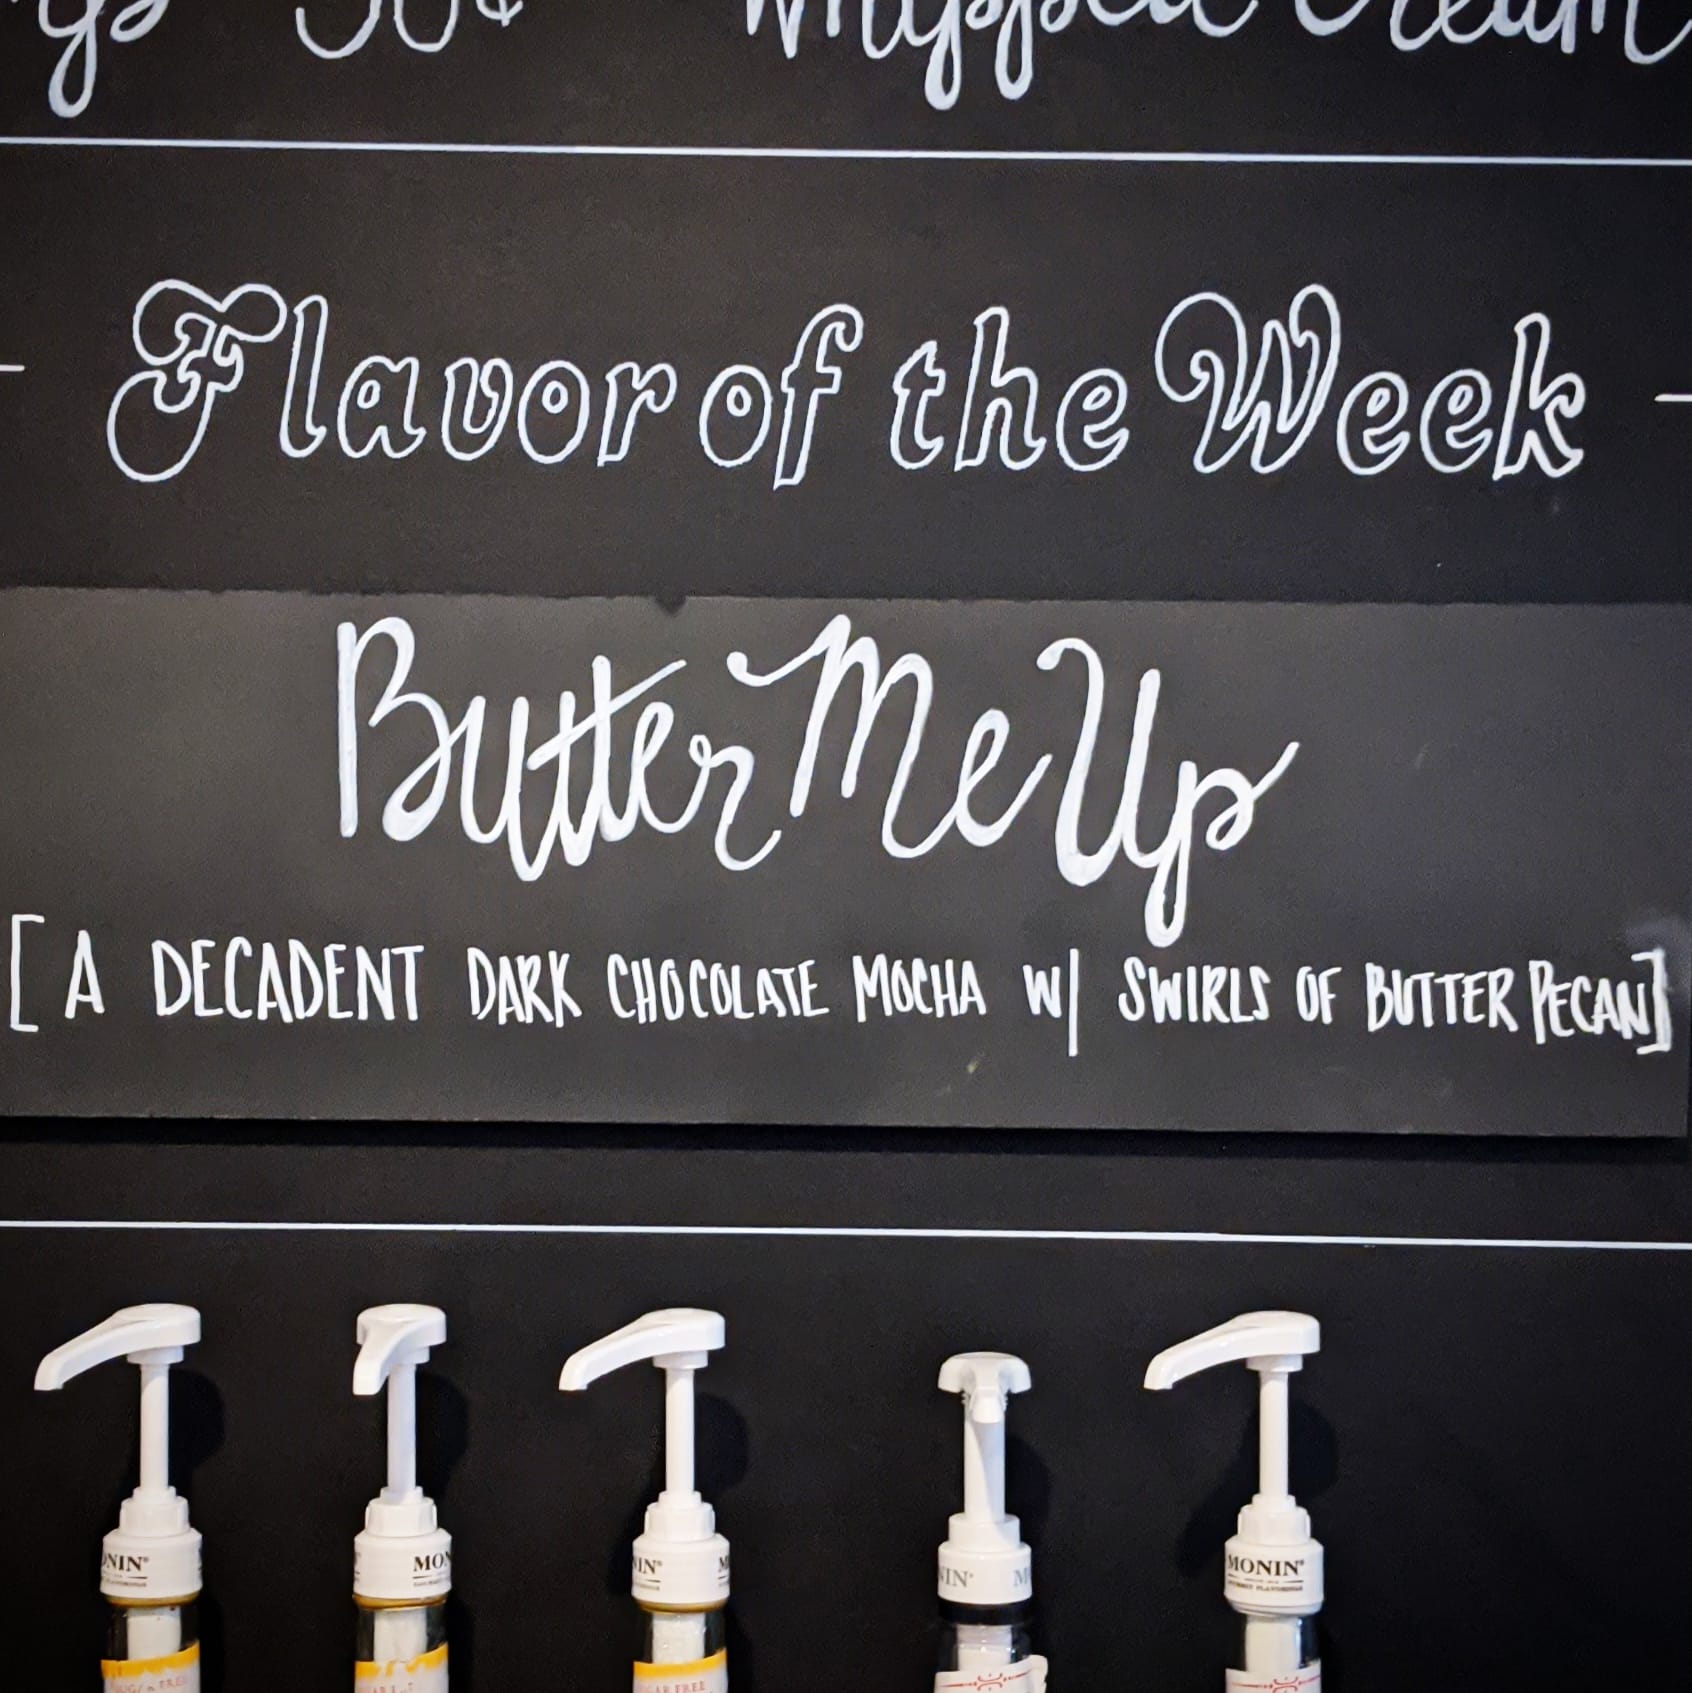 50¢ Whipped Cream
Flavor of the Week
Butter Me Up
[A DECADENT DARK CHOCOLATE MOCHA W/ SWIRLS OF BUTTER PECAN]
MONIN
SUGAR FREE